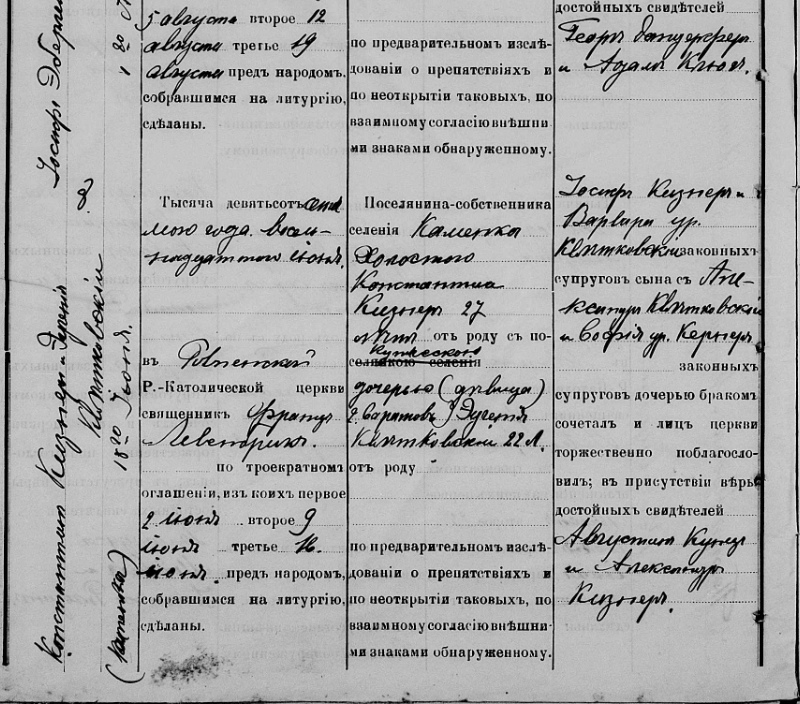 5 августа второе 12
августа третье 19
августа предъ народомъ,
собравшимся на литургію,
сдѣланы.
по предварительномъ изслѣ-
дованіи о препятствіяхъ и
по неоткрытіи таковыхъ, по
взаимному согласію внѣшни-
ми знаками обнаруженному.
достойныхъ свидѣтелей
Георгъ
и Адамъ
Константинъ Кизнеръ и Евгенія
Квятковскій
18го Іюня.
(Каменка)
Тысяча девятьсотъ седь
мого года восем-
надцатого іюня.
въ Ровненской
Р.-Католической церкви
священникъ Францъ
по троекратномъ
оглашеніи, изъ коихъ первое
2 іюня второе 9
іюня третье 16
іюня предъ народомъ,
собравшимся на литургію,
сдѣланы.
Поселянина-собственника
селенія Каменка
Холостого
Константина
Кизнеръ 27
лѣтъ отъ роду съ по-
купческою
дочерью (дѣвица)
г. Саратовъ) Эугенія
Квятковскій 22 л.
отъ роду
по предварительномъ изслѣ-
дованіи о препятствіяхъ и
по неоткрытіи таковыхъ, по
взаимному согласію внѣшни-
ми знаками обнаруженному.
Іосифъ Кизнеръ и
Варвара ур.
Квятковскій законныхъ
супруговъ сына съ Але-
ксандръ Квятковскій
и Софія ур. Кернеръ
законныхъ
супруговъ дочерью бракомъ
сочеталъ и лицъ церкви
торжественно поблагосло-
вилъ; въ присутствіи вѣры
достойныхъ свидѣтелей
Августинъ Кунцъ
и Александръ
Кизнеръ.